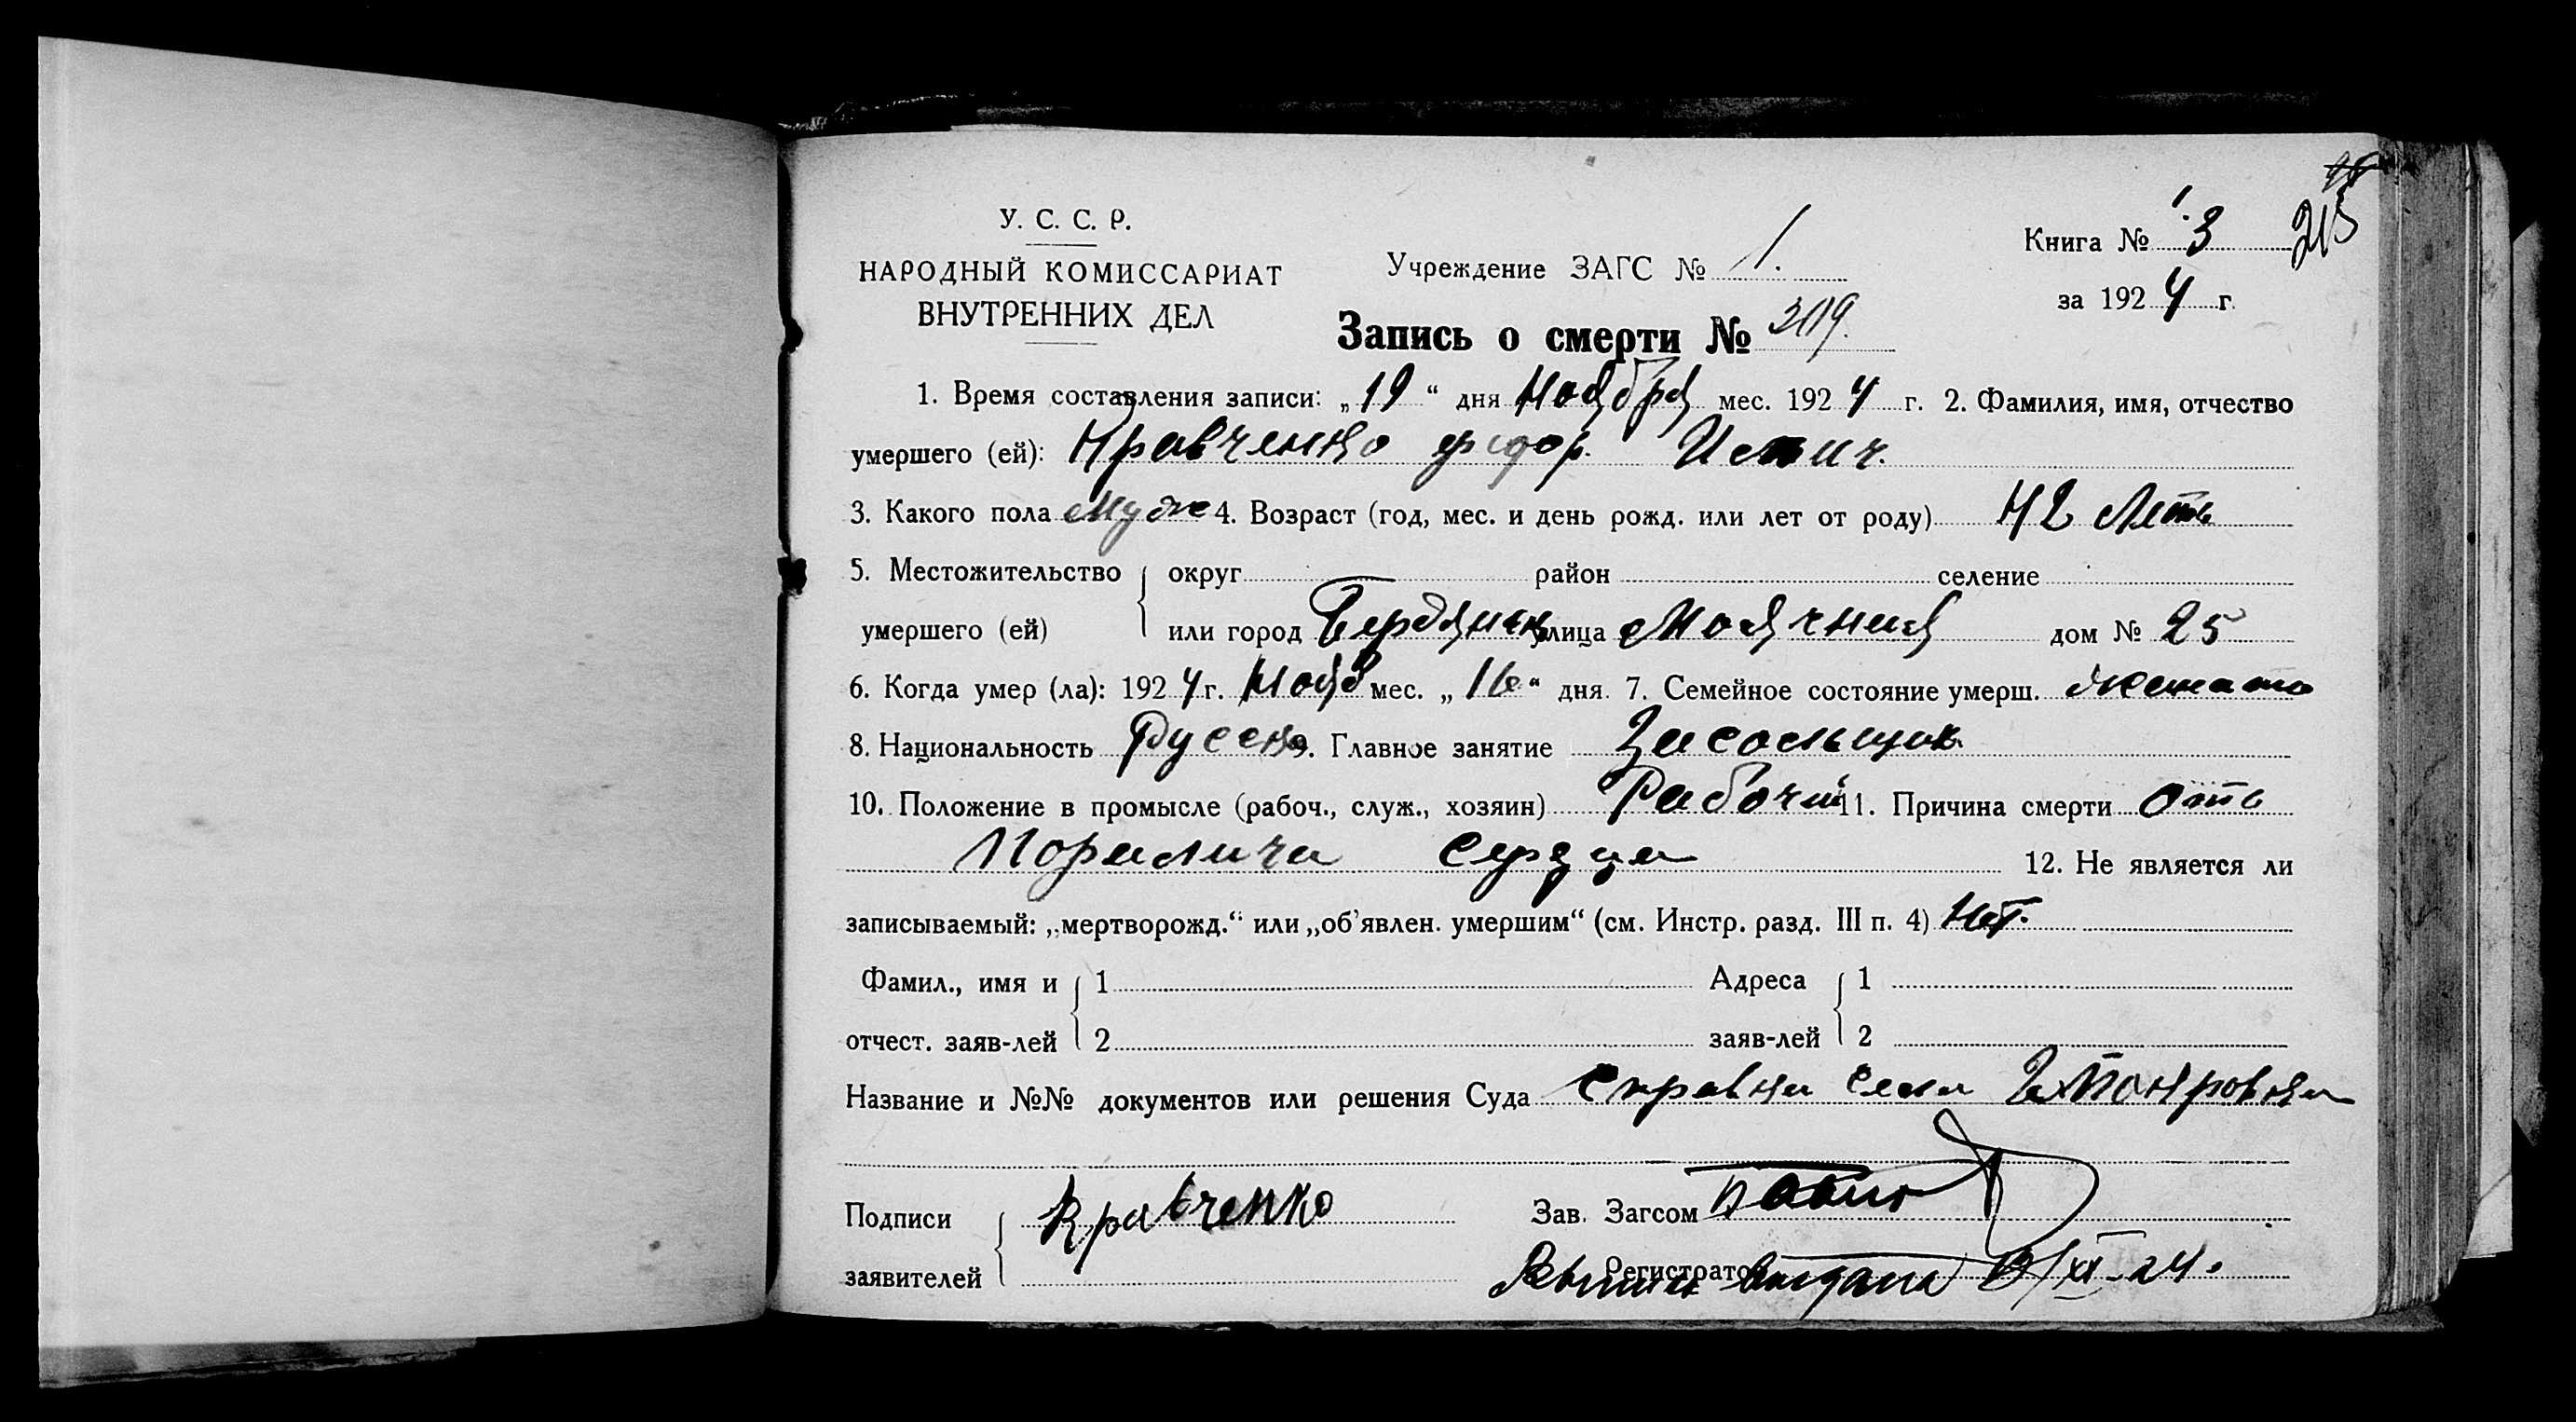 215
У. С. С. Р.
НАРОДНЫЙ КОМИССАРИАТ
ВНУТРЕННИХ ДЕЛ
Учреждение ЗАГС № 1.
Книга № 3
за 1924 г.
Запись о смерти № 309.
1. Время составления записи: „19“ дня Ноября мес. 1924 г. 2. Фамилия, имя, отчество
умершего (ей): Кравченко Фидор.
3. Какого пола Муж 4. Возраст (год, мес. и день рожд. или лет от роду) 42 Летъ
5. Местожительство округ район селение
умершего (ей) или город Бердянск улица Маячная дом № 25
6. Когда умер (ла): 1924 г. Нояб мес. „16“ дня. 7. Семейное состояние умерш. женатъ
8. Национальность Русск 9. Главное занятие Засольщик
10. Положение в промысле (рабоч., служ., хозяин) Рабочий 11. Причина смерти отъ
Поралича Сердца 12. Не является ли
записываемый: „мертворожд.“ или „об’явлен. умершим“ (см. Инстр. разд. III п. 4) Нет.
Фамил., имя и 1 Адреса 1
отчест. заяв-лей 2 заяв-лей 2
Название и №№ документов или решения Суда Справки Села
Подписи Кравченко Зав. Загсом
заявителей Регистратор выдана 19/XI-24.